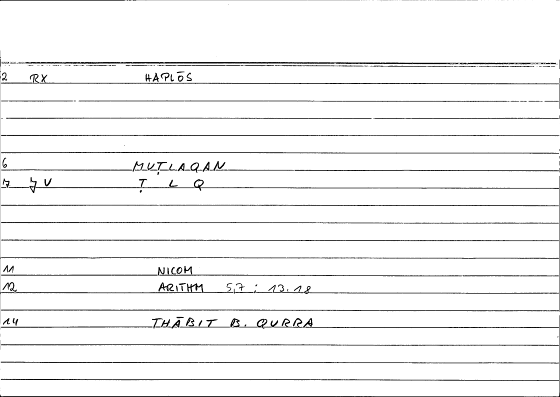 2 RX HAPLŌS
6 MUṬLAQAN
17 V Ṭ L Q
11 NICOM
12 ARITHM 5,7 : 13.18
14 THĀBIT B. QURRA